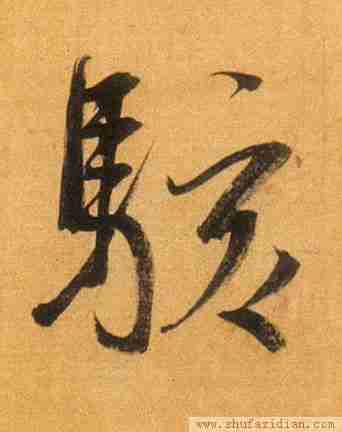 駭
www.shufazidian.com